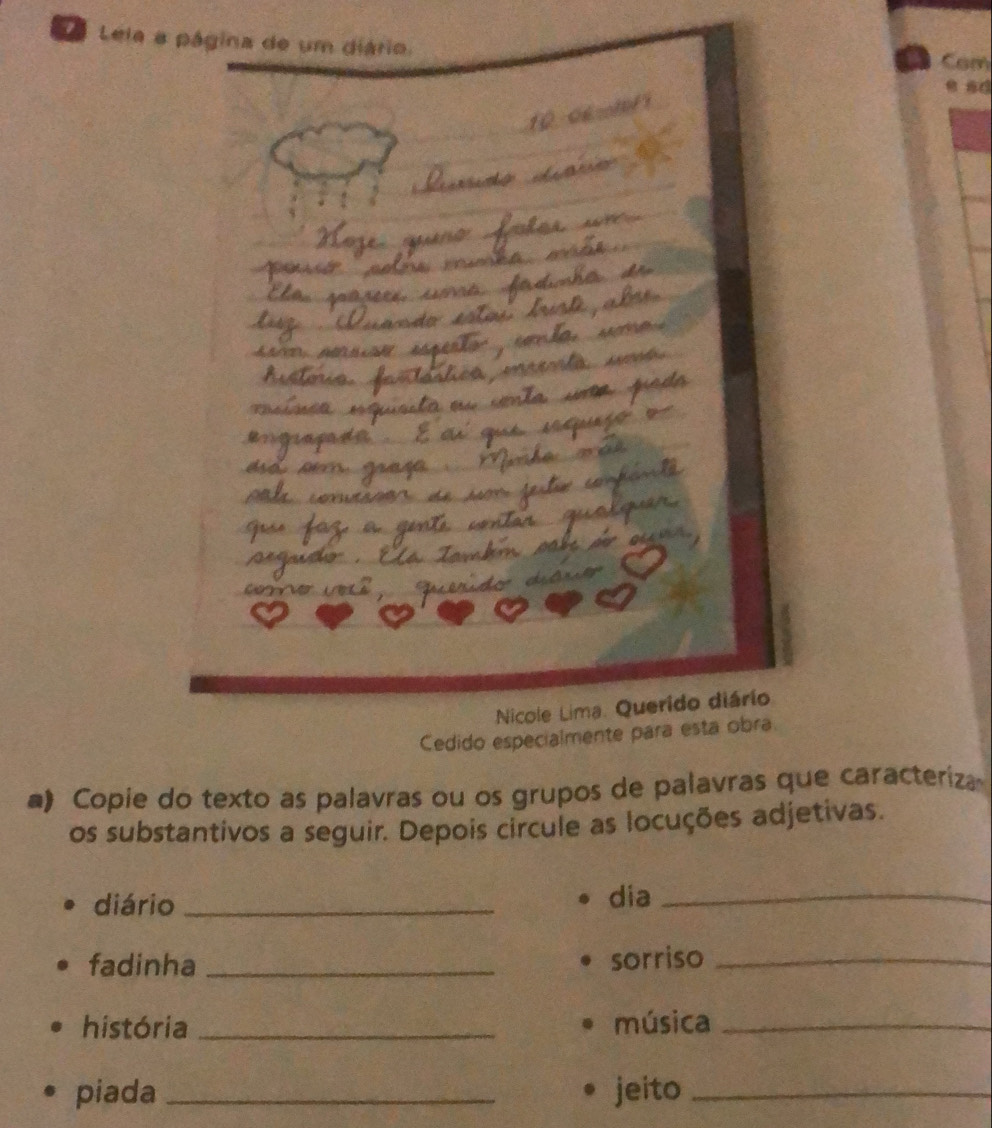 7 Leia a página de um diário.
Com
10-06-
Querido diário
Hoje quero falar um
pouco sobre minha mãe.
Ela parece uma fadinha de
luz. Quando estou triste, abre
um sorriso esperto, conta uma
história fantástica, inventa uma
música esquisita ou conta uma piada
engraçada. E aí que esqueço o
dia sem graça. Minha mãe
sabe conversar de um jeito confiante
que faz a gente contar qualquer
segredo. Ela também sabe só ouvir,
como você, querido diário
Nicole Lima. Querido diário
Cedido especialmente para esta obra.
a) Copie do texto as palavras ou os grupos de palavras que caracterizam
os substantivos a seguir. Depois circule as locuções adjetivas.
• diário
• dia
• fadinha
• sorriso
• história
• música
• piada
• jeito